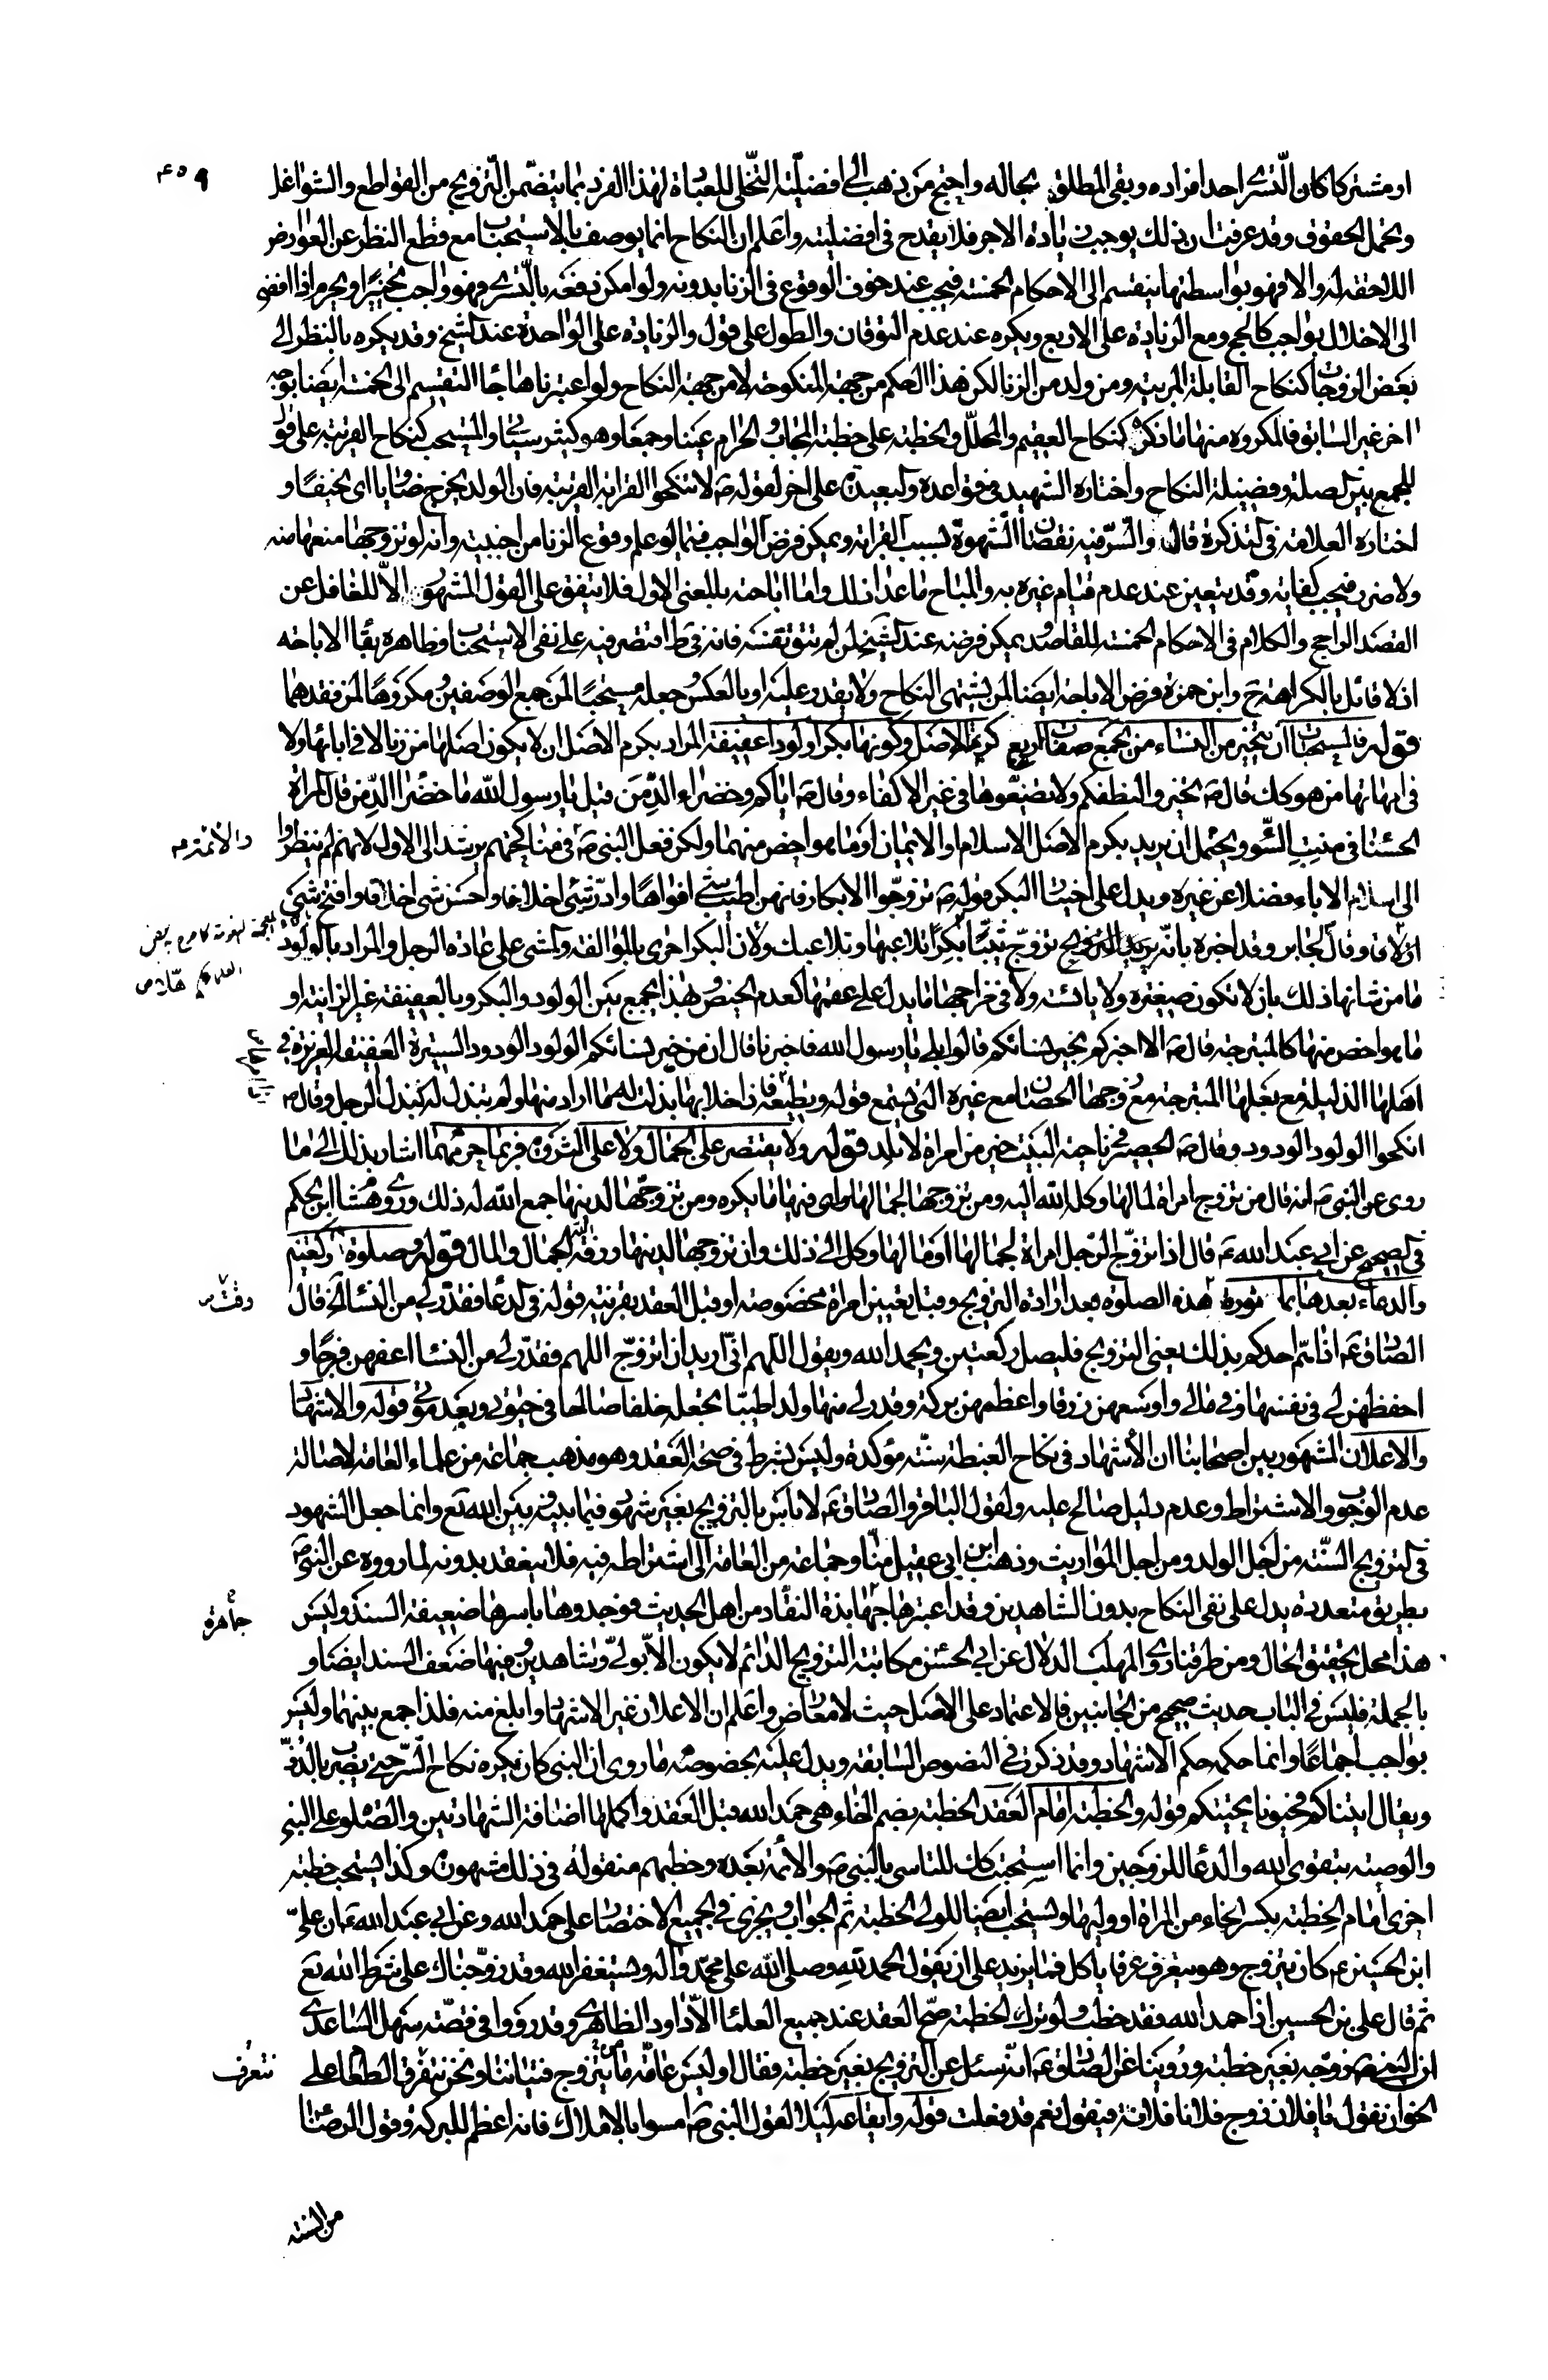 ٤٥٩
او مشتركا كان التسرى احد افراده ويبقى المطلق بحاله واحتج من ذهب الى افضلية التخلى للعبادة لهذا الفرد بما يتضمن التزويج من القواطع والشواغل
وتحمل الحقوق وقد عرفت ان ذلك يوجب زيادة الاجر فلا يقدح فى افضليته واعلم ان النكاح انما يوصف بالاستحباب مع قطع النظر عن العوارض
اللاحقة له والا فهو بواسطتها ينقسم الى الاحكام الخمسة فيجب عند خوف الوقوع فى الزنا بدونه ولو امكن دفعه بالتسرى فهو واجب تخييرا ويحرم اذا افضى
الى الاخلال بواجب كالحج ومع الزيادة على الاربع ويكره عند عدم التوقان والطول على قول والزيادة على الواحدة عند الشيخ وقد يكره بالنظر الى
بعض الزوجات كنكاح القابلة المربية ومن ولد من الزنا لكن هذا الحكم من جهة المنكوحة لا من جهة النكاح ولو اعتبرناها جاء التقسيم الى الخمسة ايضا بوجه
اخر غير السابق فالمكروه منها ما ذكر كنكاح العقيم والمحلل والخطبة على خطبة المجاب والحرام عينا وجمعا وهو كثير سياتى والمستحب كنكاح القريبة على قول
للجمع بين الصلة وفضيلة النكاح واختاره الشهيد فى قواعده والبعيدة على اخر لقوله ص لا تنكحوا القرابة القريبة فان الولد يخرج ضاويا اى نحيفا و
اختاره العلامة فى التذكرة قال والسر فيه نقصان الشهوة بسبب القرابة ويمكن فرض الواجب فيما لو علم وقوع الزنا من اجنبية وانه لو تزوجها منعها منه
ولا ضرر فيجب كفاية وقد يتعين عند عدم قيام غيره به والمباح ما عدا ذلك واما اباحته بالمعنى الاول فلا يتفق على القول المشهور الا للغافل عن
القصد الراجح والكلام فى الاحكام الخمسة للقاصد ويمكن فرضه عند الشيخ لمن لم تتق نفسه فانه فى ط اقتصر فيه على نفى الاستحباب وظاهره بقاء الاباحة
اذ لا قائل بالكراهة ح وابن حمزة فرض الاباحة ايضا لمن يشتهى النكاح ولا يقدر عليه او بالعكس وجعله مستحبا لمن جمع الوصفين ومكروها لمن فقدهما
قوله فالمستحبات ان يتخير من النساء من تجمع صفات اربع كرم الاصل وكونها بكرا ولودا عفيفة المراد بكرم الاصل ان لا يكون اصلها من زنا لا فى ابائها ولا
فى امهاتها من هو كك قال ص تخيروا لنطفكم ولا تضعوها فى غير الاكفاء وقال ص اياكم وخضراء الدمن قيل يا رسول الله ما خضراء الدمن قال المراة
الحسناء فى منبت السوء ويحتمل ان يريد بكرم الاصل الاسلام او الايمان او ما هو اخص منهما ولكن فعل النبى ص فى مناكحتهم يرشد الى الاول لانهم لم ينظروا
والائمة م
الى اسلام الاباء فضلا عن غيره ويدل على اختيار البكر قوله ص تزوجوا الابكار فانهن اطيب شئ افواها وادر شئ اخلافا واحسن شئ اخلاقا وافتح شئ
ارحاما وقال لجابر وقد اخبره بانه يريد التزويج تزوج ثيبا بكرا تلاعبها وتلاعبك ولان البكر احرى بالموالفة والمشى على عادة الرجل والمراد بالولود
ما من شانها ذلك بان لا تكون صغيرة ولا يائسة ولا فى مزاجها ما يدل على عقمها كعدم الحيض وبهذا يجمع بين الولود والبكر وبالعفيفة غير الزانية او
ما هو اخص منها كالمتبرجة قال ص الا اخبركم بخير نسائكم قالوا بلى يا رسول الله فاخبرنا قال ان من خير نسائكم الولود الودود الستيرة العفيفة العزيزة فى
اهلها الذليلة مع بعلها المتبرجة مع زوجها الحصان مع غيره التى تسمع قوله وتطيع امره فاذا خلا بها بذلت له ما اراد منها ولم تبذل له تبذل الرجل وقال ص
انكحوا الولود الودود وقال ص الحصير فى ناحية البيت خير من امراة لا تلد قوله ولا يقتصر على الجمال ولا على الثروة فربما حرمهما اشار بذلك الى ما
روى عن النبى ص انه قال من تزوج امراة لمالها وكله الله اليه ومن تزوجها لجمالها راى فيها ما يكره ومن تزوجها لدينها جمع الله له ذلك وروى هشام ابن الحكم
فى الصحيح عن ابى عبد الله ع قال اذا تزوج الرجل امراة لجمالها او مالها وكل الى ذلك وان تزوجها لدينها رزقه الله الجمال والمال قوله وصلوة ركعتين
والدعاء بعدهما بما صورته هذه الصلوة بعد ارادة التزويج وقبل تعيين امراة مخصوصة او قبل العقد بقرينة قوله فى الدعاء فقدر لى من النساء الخ قال
وقت
الصادق ع اذا هم احدكم بذلك يعنى التزويج فليصل ركعتين ويحمد الله ويقول اللهم انى اريد ان اتزوج اللهم فقدر لى من النساء اعفهن فرجا و
احفظهن لى فى نفسها وفى مالى واوسعهن رزقا واعظمهن بركة وقدر لى منها ولدا طيبا تجعله خلفا صالحا فى حيوتى وبعد موتى قوله والاشهاد
والاعلان المشهور بين اصحابنا ان الأشهاد فى نكاح الغبطة سنة مؤكدة وليس بشرط فى صحة العقد وهو مذهب جماعة من علماء العامة لاصالة
عدم الوجوب والاشتراط وعدم دليل صالح عليه ولقول الباقر والصادق ع لا باس بالتزويج بغير شهود فيما بينه وبين الله تع وانما جعل الشهود
فى التزويج السنة من اجل الولد ومن اجل المواريث وذهب ابن ابى عقيل منا وجماعة من العامة الى اشتراطه فيه فلا ينعقد بدونه لما رووه عن النبى ص
بطريق متعددة يدل على نفى النكاح بدون الشاهدين وقد اعتبرها جهابذة النقاد من اهل الحديث فوجدوها باسرها ضعيفة السند وليس
جاهرة
هذا محل تحقيق الحال ومن طرقنا روى المهلب الدلال عن ابى الحسن مكاتبة التزويج الدائم لا يكون الا بولى وشاهدين وفيها ضعف السند ايضا و
بالجملة فليس فى الباب حديث صحيح من الجانبين فالاعتماد على الاصل حيث لا معارض واعلم ان الاعلان غير الاشهاد وابلغ منه فلذا جمع بينهما وليس
بواجب اجماعا وانما حكمه حكم الاشهاد وقد ذكر فى النصوص السابقة ويدل عليه بخصوصه ما روى ان النبى كان يكره نكاح السر حتى يضرب بالدف
ويقال اتيناكم فحيونا نحييكم قوله والخطبة امام العقد الخطبة بضم الخاء هى حمد الله قبل العقد واكمالها اضافة الشهادتين والصلوة على النبى
والوصية بتقوى الله والدعاء للزوجين وانما استحبت كك للتاسى بالنبى ص والأئمة بعده وخطبهم منقولة فى ذلك مشهورة وكذا يستحب خطبة
اخرى امام الخطبة بكسر الخاء من المراة او وليها ويستحب ايضا للولى الخطبة ثم الجواب ويجزى فى الجميع الاختصار على حمد الله وعن ابى عبد الله ع ان على
ابن الحسين ع كان يتزوج وهو يتعرق عرقا ياكل فما يزيد على ان يقول الحمد لله وصلى الله على محمد واله ونستغفر الله وقد زوجناك على شرط الله تع
ثم قال على بن الحسين اذا حمد الله فقد خطب ولو ترك الخطبة صح العقد عند جميع العلماء الا داود الظاهرى وقد رووا فى قصة سهل الساعدى
ان النبى ص زوجه بغير خطبة وروينا عن الصادق ع انه سئل عن التزويج بغير خطبة فقال او ليس عامة ما يتزوج فتياننا ونحن نتعرق الطعام على
نتعرق
الخوان نقول يا فلان زوج فلانا فلانة فيقول نعم قد فعلت قوله وايقاعه ليلا لقول النبى ص امسوا بالاملاك فانه اعظم للبركة وقول الرضا ع
من السنة